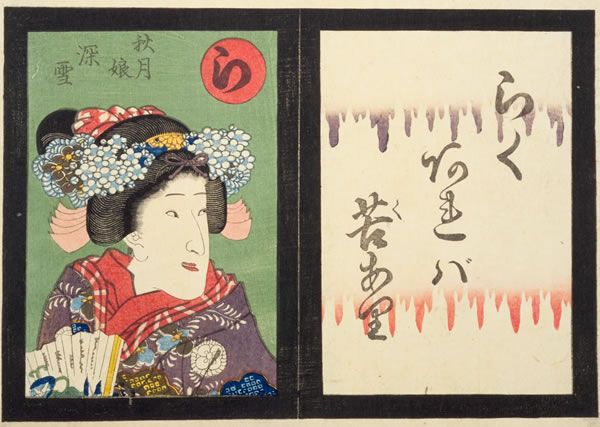 ら
秋月
娘
深雪
らく
あれバ
苦あり
く